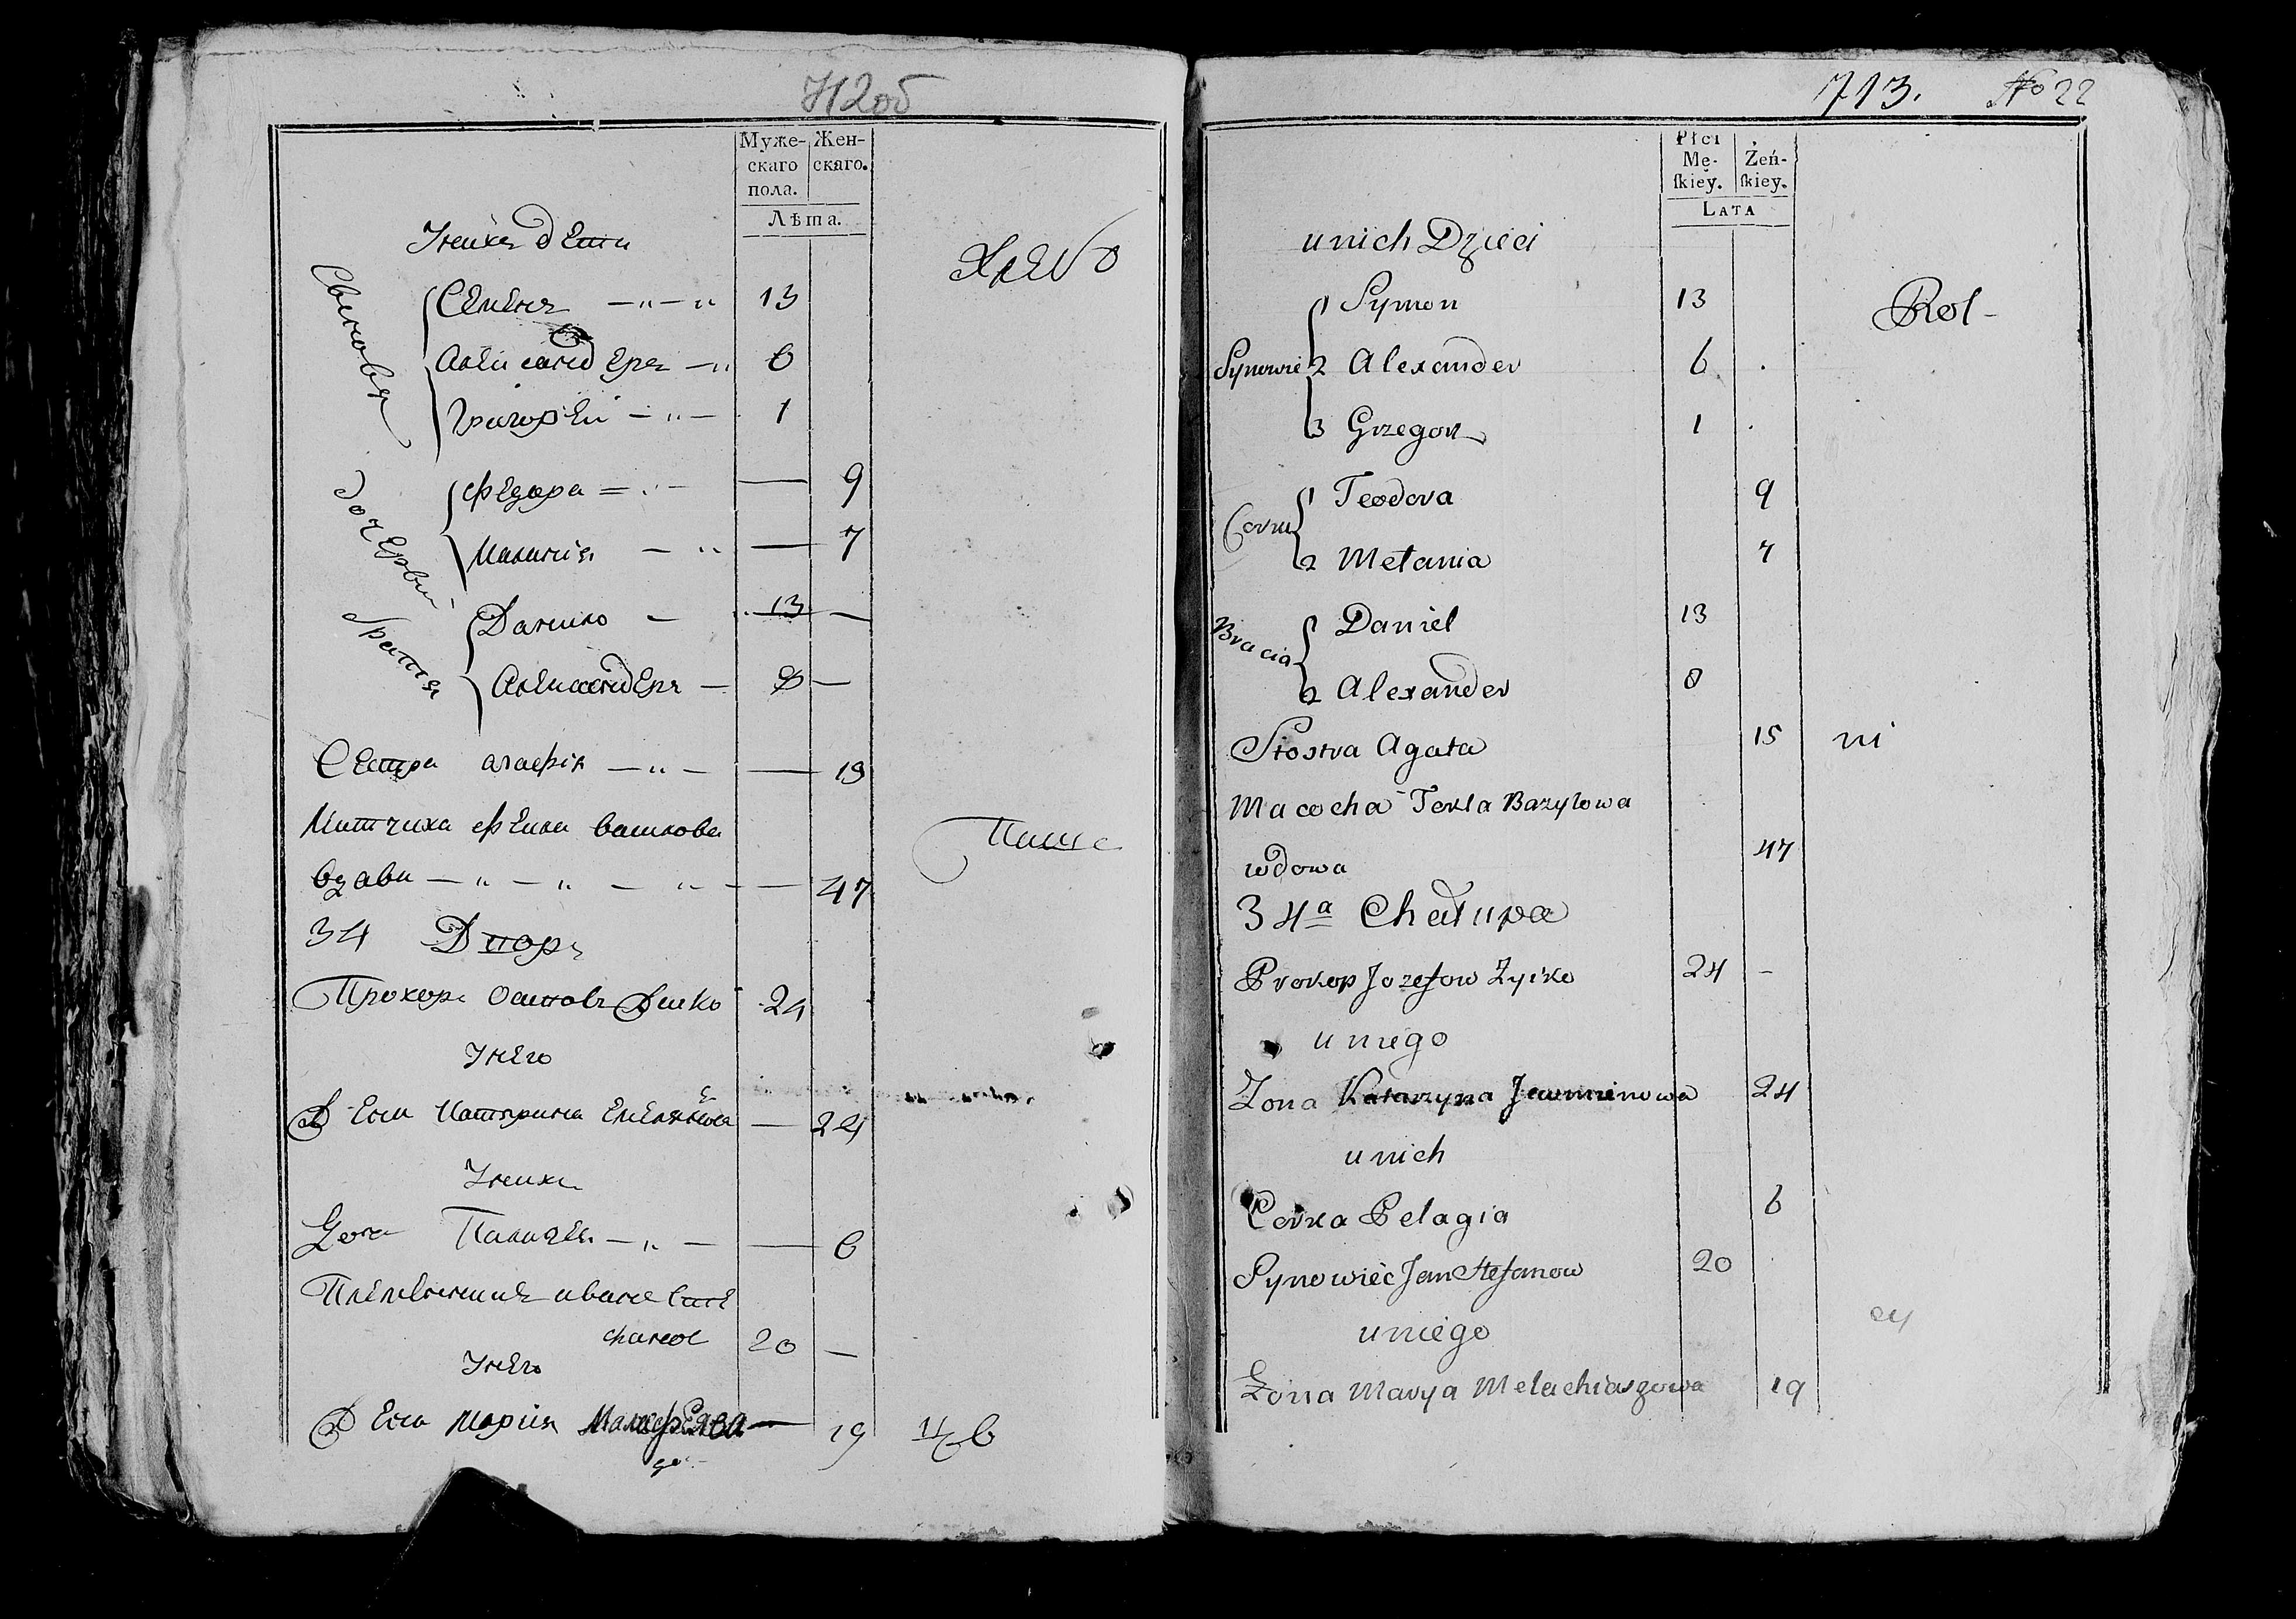 712об
Муже-
скаго
пола.
Жен-
скаго.
Лѣта.
Унихъ дети
Сыновя
Семенъ 13
Александеръ 6
Григорей 1
дочерьи
Федора — 9
Маланія — 7
братья
Данило 13 —
Александеръ 8 —
Сестра агафія — 19
Матчиха Фекла васкова
вдава — 47
34 Дворъ
Прохоръ Осиповъ 24
Унего
Жена Катярина — 24
Унихъ
Дочь — 6
Племенникъ иванъ Сте
фановъ 20 —
Унего
Жена Марія — 19
Хлебо
Паше
цѣв
713. No 22
Płci
Mę-
ſkiey.
Żeń-
ſkiey.
LATA
u nich Dzieci
Synowie
1 Symon 13
2 Alexander 6
3 Grzegorz 1
Corki
1 Teodora 9
2 Mełania 7
Bracia
1 Daniel 13
2 Alexander 8
Siostra Agata 15
Macocha Tekla Bazylowa
wdowa 47
34a Chałupa
Prokop Jozefow Zyłko 24 —
u niego
Zona Katarzyna 24
u nich
Corka Pelagia 6
Synowiec Jan Stefanow 20
u niego
Zona Marya Melachiaszowa 19
Rol-
ni
cy